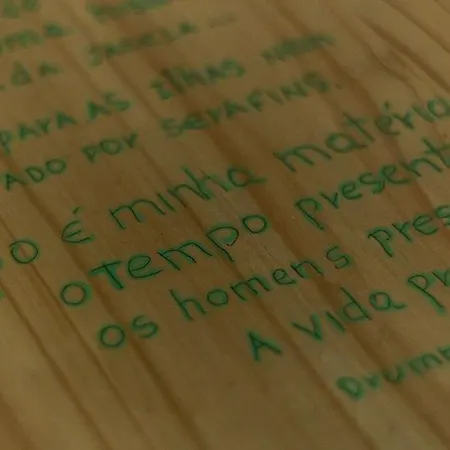 UMA
DA JANELA...
PARA AS ILHAS NEM
ADO POR SERAFINS.
O É minha matéria
O Tempo present
os homens pres
A vida pr
DRUMM